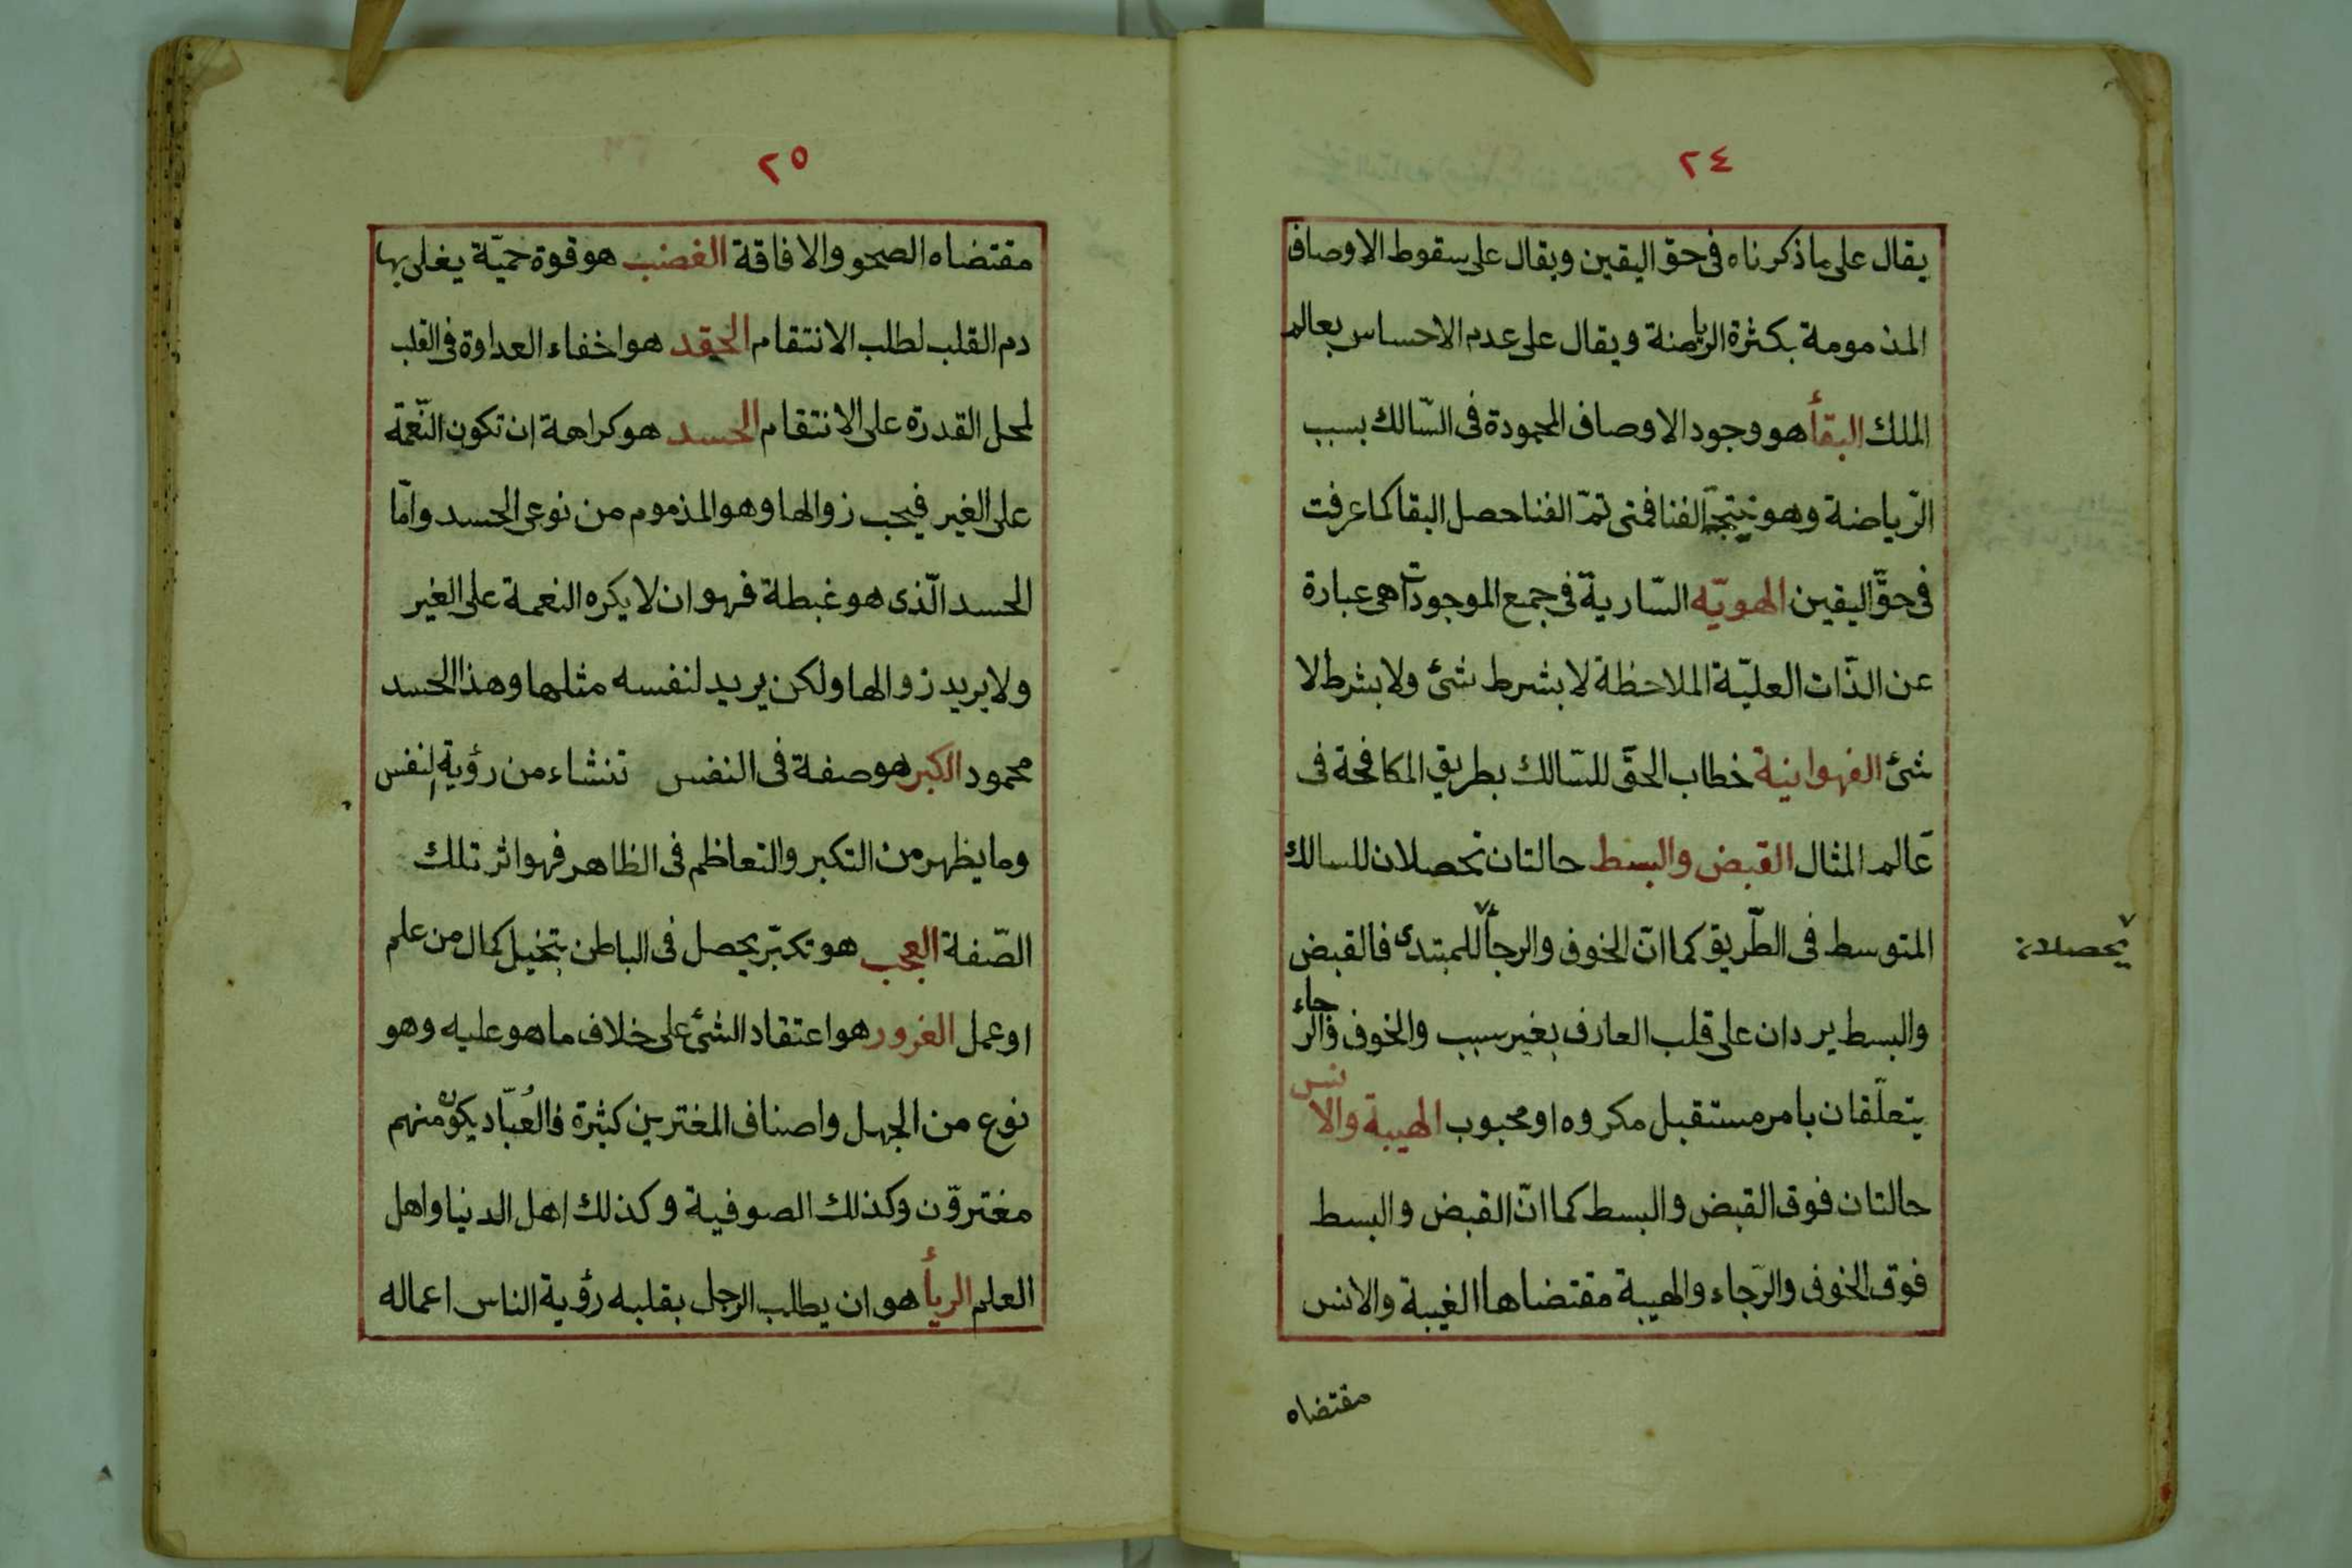 ٢٤
يقال على ما ذكرناه فى حق اليقين ويقال على سقوط الاوصاف
المذمومة بكثرة الرياضة ويقال على عدم الاحساس بعالم
الملك البقأ هو وجود الاوصاف المحمودة فى السّالك بسبب
الرّياضة وهو نتيجة الفنا فمتى تمّ الفنا حصل البقا كما عرفت
فى حقّ اليقين الهويّه السّارية فى جمع الموجودات هى عبارة
عن الذّات العليّة الملاحظة لا بشرط شئ ولا بشرط لا
شئ الفهوانية خطاب الحقّ للسّالك بطريق المكافحة فى
عالم المثال القبض والبسط حالتان تحصلان للسالك
المتوسط فى الطّريق كما انّ الخوف والرجأ للمبتدئ فالقبض
يحصلان
والبسط يردان على قلب العارف بغير سبب والخوف والرّجاء
يتعلّقان بامر مستقبل مكروه او محبوب الهيبة والانس
حالتان فوق القبض والبسط كما انّ القبض والبسط
فوق الخوف والرّجاء والهيبة مقتضاها الغيبة والانس
مقتضاه
٢٥
مقتضاه الصحو والافاقة الغضب هو قوة حميّة يغلى بها
دم القلب لطلب الانتقام الحقد هو اخفاء العداوة فى القلب
لمحل القدرة على الانتقام الحسد هو كراهة ان تكون النّعمة
على الغير فيحب زوالها وهو المذموم من نوعى الحسد وامّا
الحسد الّذى هو غبطة فهو ان لا يكره النعمة على الغير
ولا يريد زوالها ولكن يريد لنفسه مثلها وهذا الحسد
محمود الكبر هو صفة فى النفس تنشاء من رؤية النفس
وما يظهر من التكبر والتعاظم فى الظاهر فهو اثر تلك
الصّفة العجب هو تكبّر يحصل فى الباطن بتخيل كمال من علم
او عمل الغرور هو اعتقاد الشئ على خلاف ما هو عليه وهو
نوع من الجهل واصناف المغترين كثيرة فالعُبّاد يكون منهم
مغترّون وكذلك الصوفية وكذلك اهل الدنيا واهل
العلم الريأ هو ان يطلب الرجل بقلبه رؤية الناس اعماله